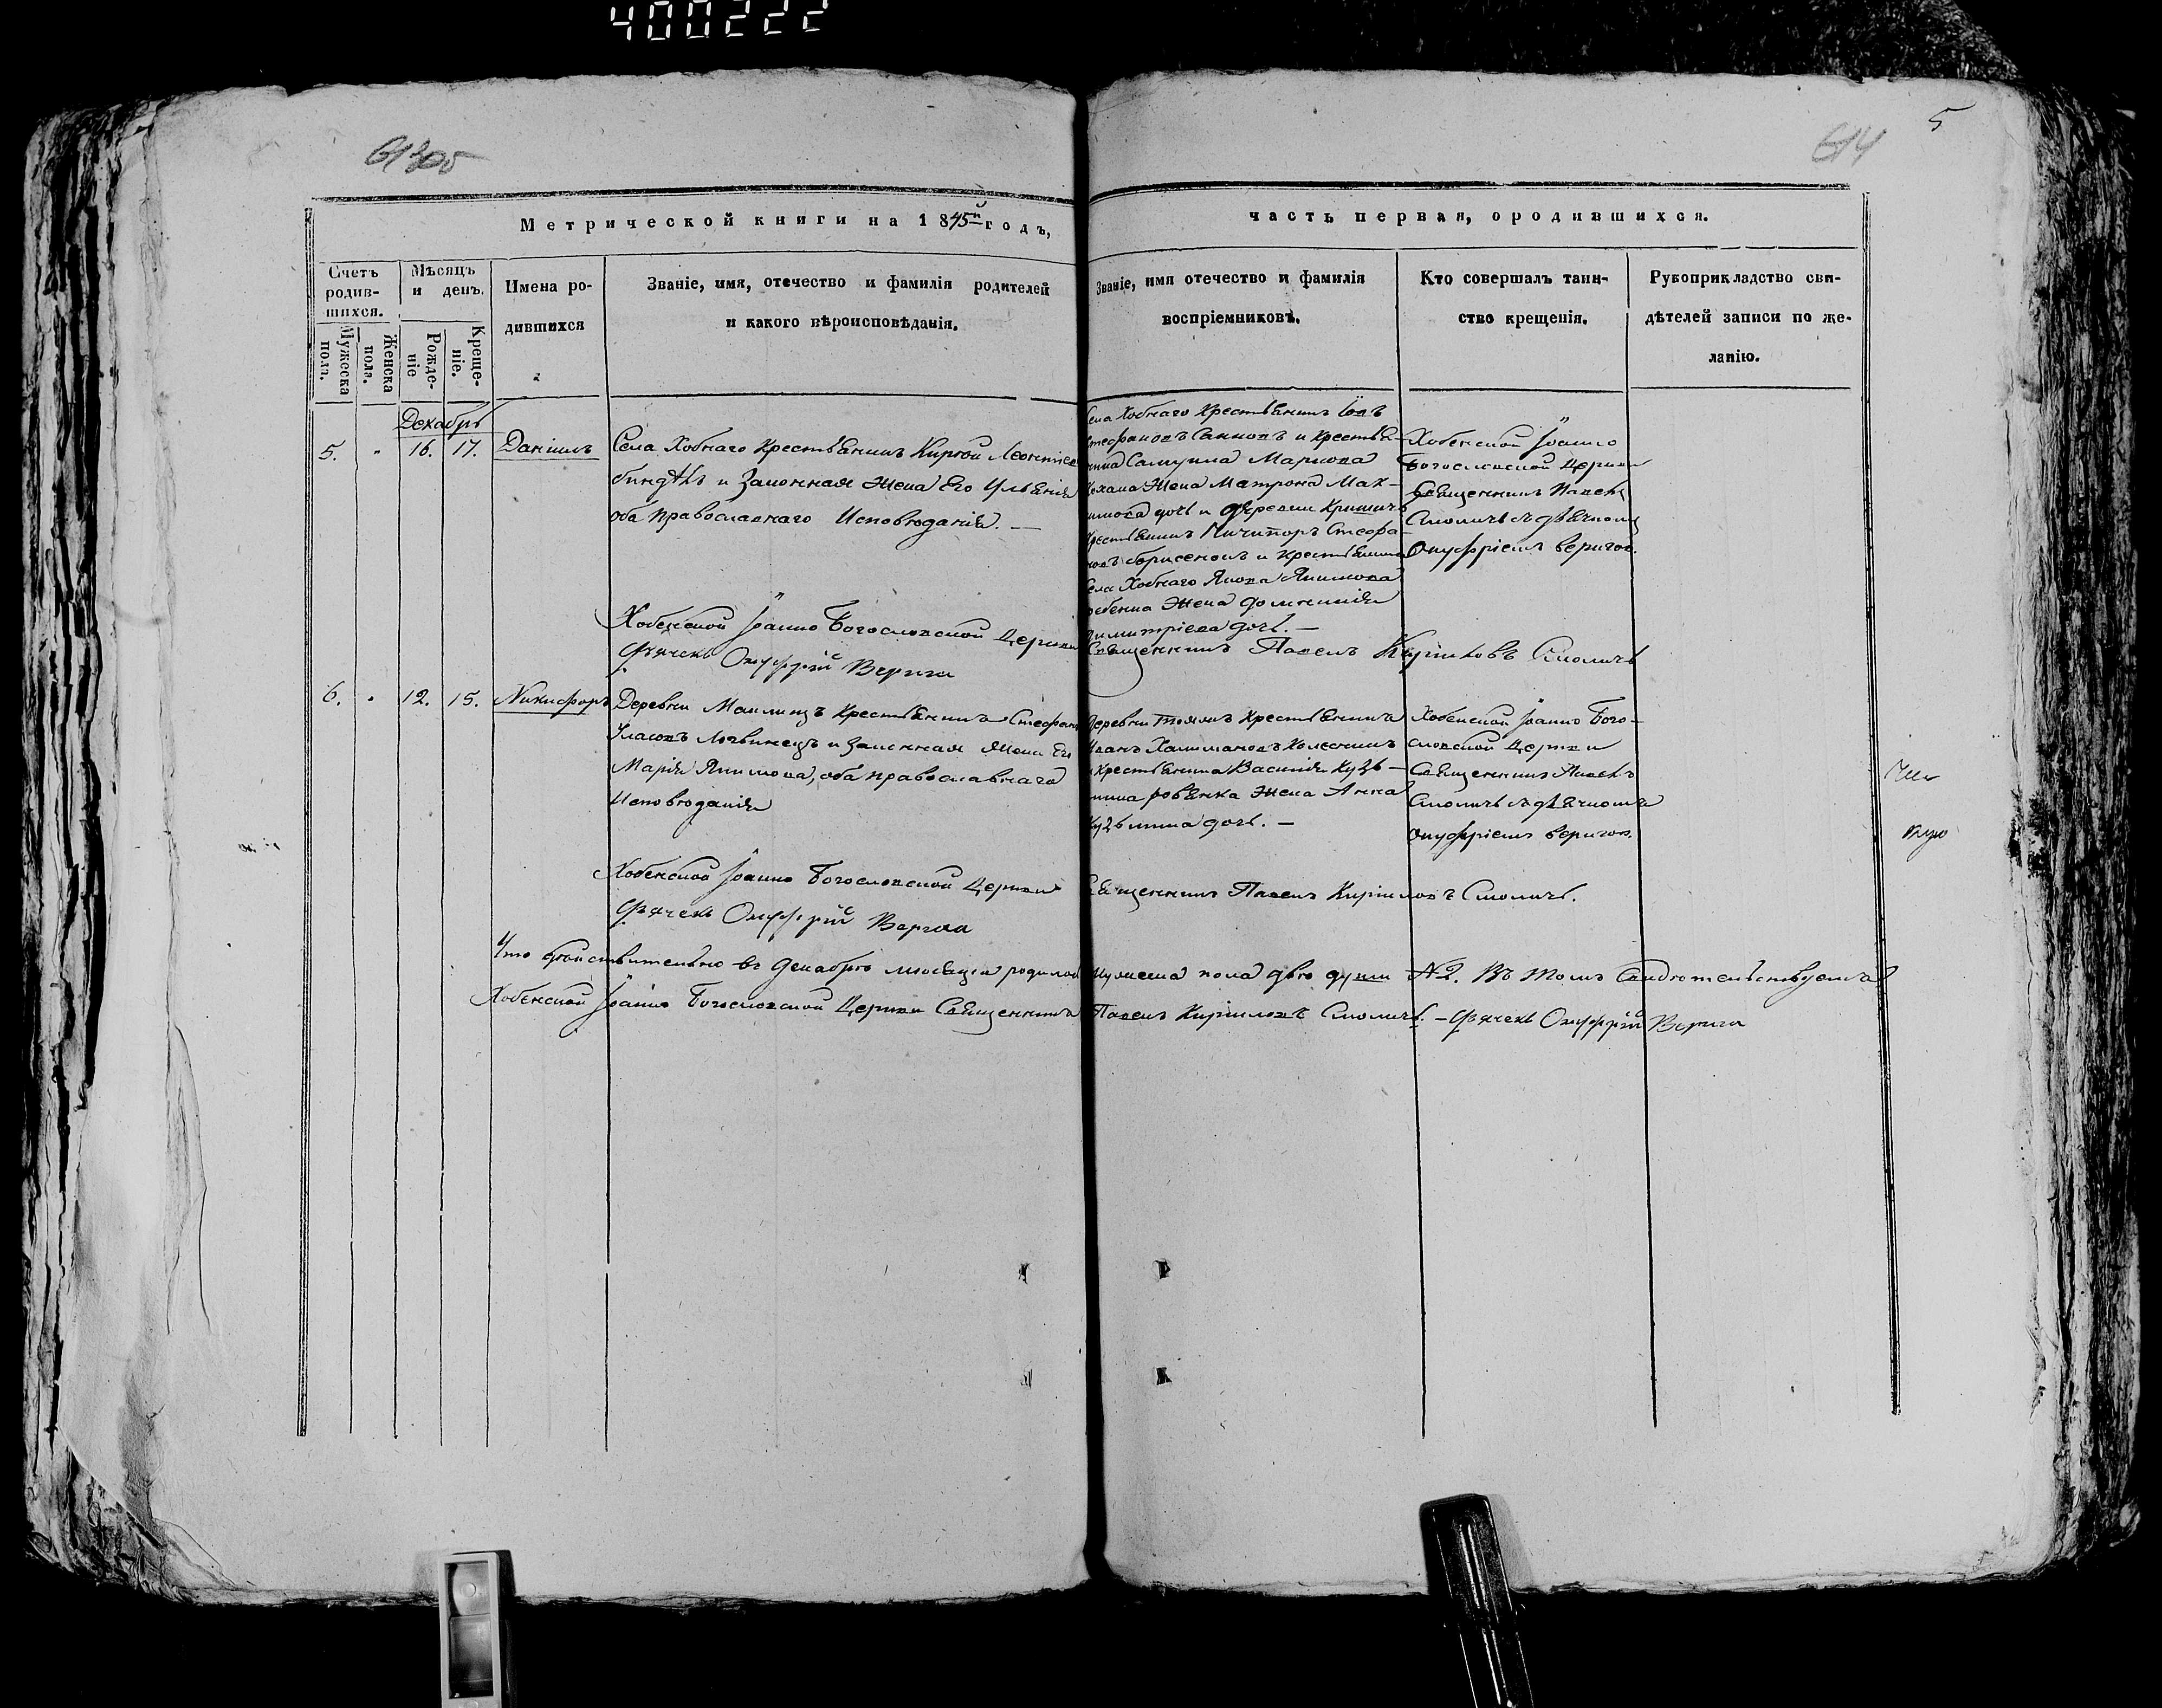 400222
613об
614
5
Метрической книги на 1845й годъ,
часть первая, ородившихся.
Счетъ родив-
шихся.
Мужеска пола.
Женска пола.
Мѣсяцъ
и день.
Рожде-
ніе
Креще-
ніе.
Имена ро-
дившихся
Званіе, имя, отечество и фамилія родителей
и какого вѣроисповѣданія.
Званіе, имя отечество и фамилія
воспріемниковъ.
Кто совершалъ таин-
ство крещенія.
Рукоприкладство сви-
дѣтелей записи по же-
ланію.
Декабрь
5. " 16. 17. Даніилъ
Села Хобнаго Крестьянинъ Леонтіев
и Законная Жена Его Ульянія
оба Православнаго Исповѣданія. —
Села Хобнаго Крестьянинъ Іовъ
Стефановъ и Крестья-
Самуила Маркова
Жена Матрона Мак-
симова дочь и деревни
Крестьянинъ Ничипоръ Стефа-
новъ Борисенокъ и Крестьянина
Села Хобнаго Якова Якимова
Жена Домникія
Димитріева дочь. —
Хобенской Іоанно
Богословской Церкви
Священникъ Павелъ
Смоличъ съ дьячкомъ
Онуфріемъ Веригою.
Хобенской Іоанно Богословской Церкви Священникъ Павелъ Кириловъ Смоличъ
Дьячекъ Онуфрій Верига
6. " 12. 15. Никифоръ
Деревни Крестьянинъ Стефанъ
Власовъ и Законная Жена Его
Марія Якимова, оба православнаго
Исповѣданія
Деревни Крестьянинъ
Иванъ Колесникъ
и Крестьянина Василія Кузь-
мина Жена Анна
Кузьмина дочь. —
Хобенской Іоанно Бого-
словской Церкви
Священникъ Павелъ
Смоличъ съ дьячкомъ
Онуфріемъ Веригою.
Хобенской Іоанно Богословской Церкви Священникъ Павелъ Кириловъ Смоличъ.
Дьячекъ Онуфрій Верига
Что действительно въ Декабрѣ мѣсяцѣ родилось мужеска пола двѣ души №2. Въ томъ Свидѣтельствуемъ
Хобенской Іоанно Богословской Церкви Священникъ Павелъ Кириловъ Смоличъ. — Дьячекъ Онуфрій Верига